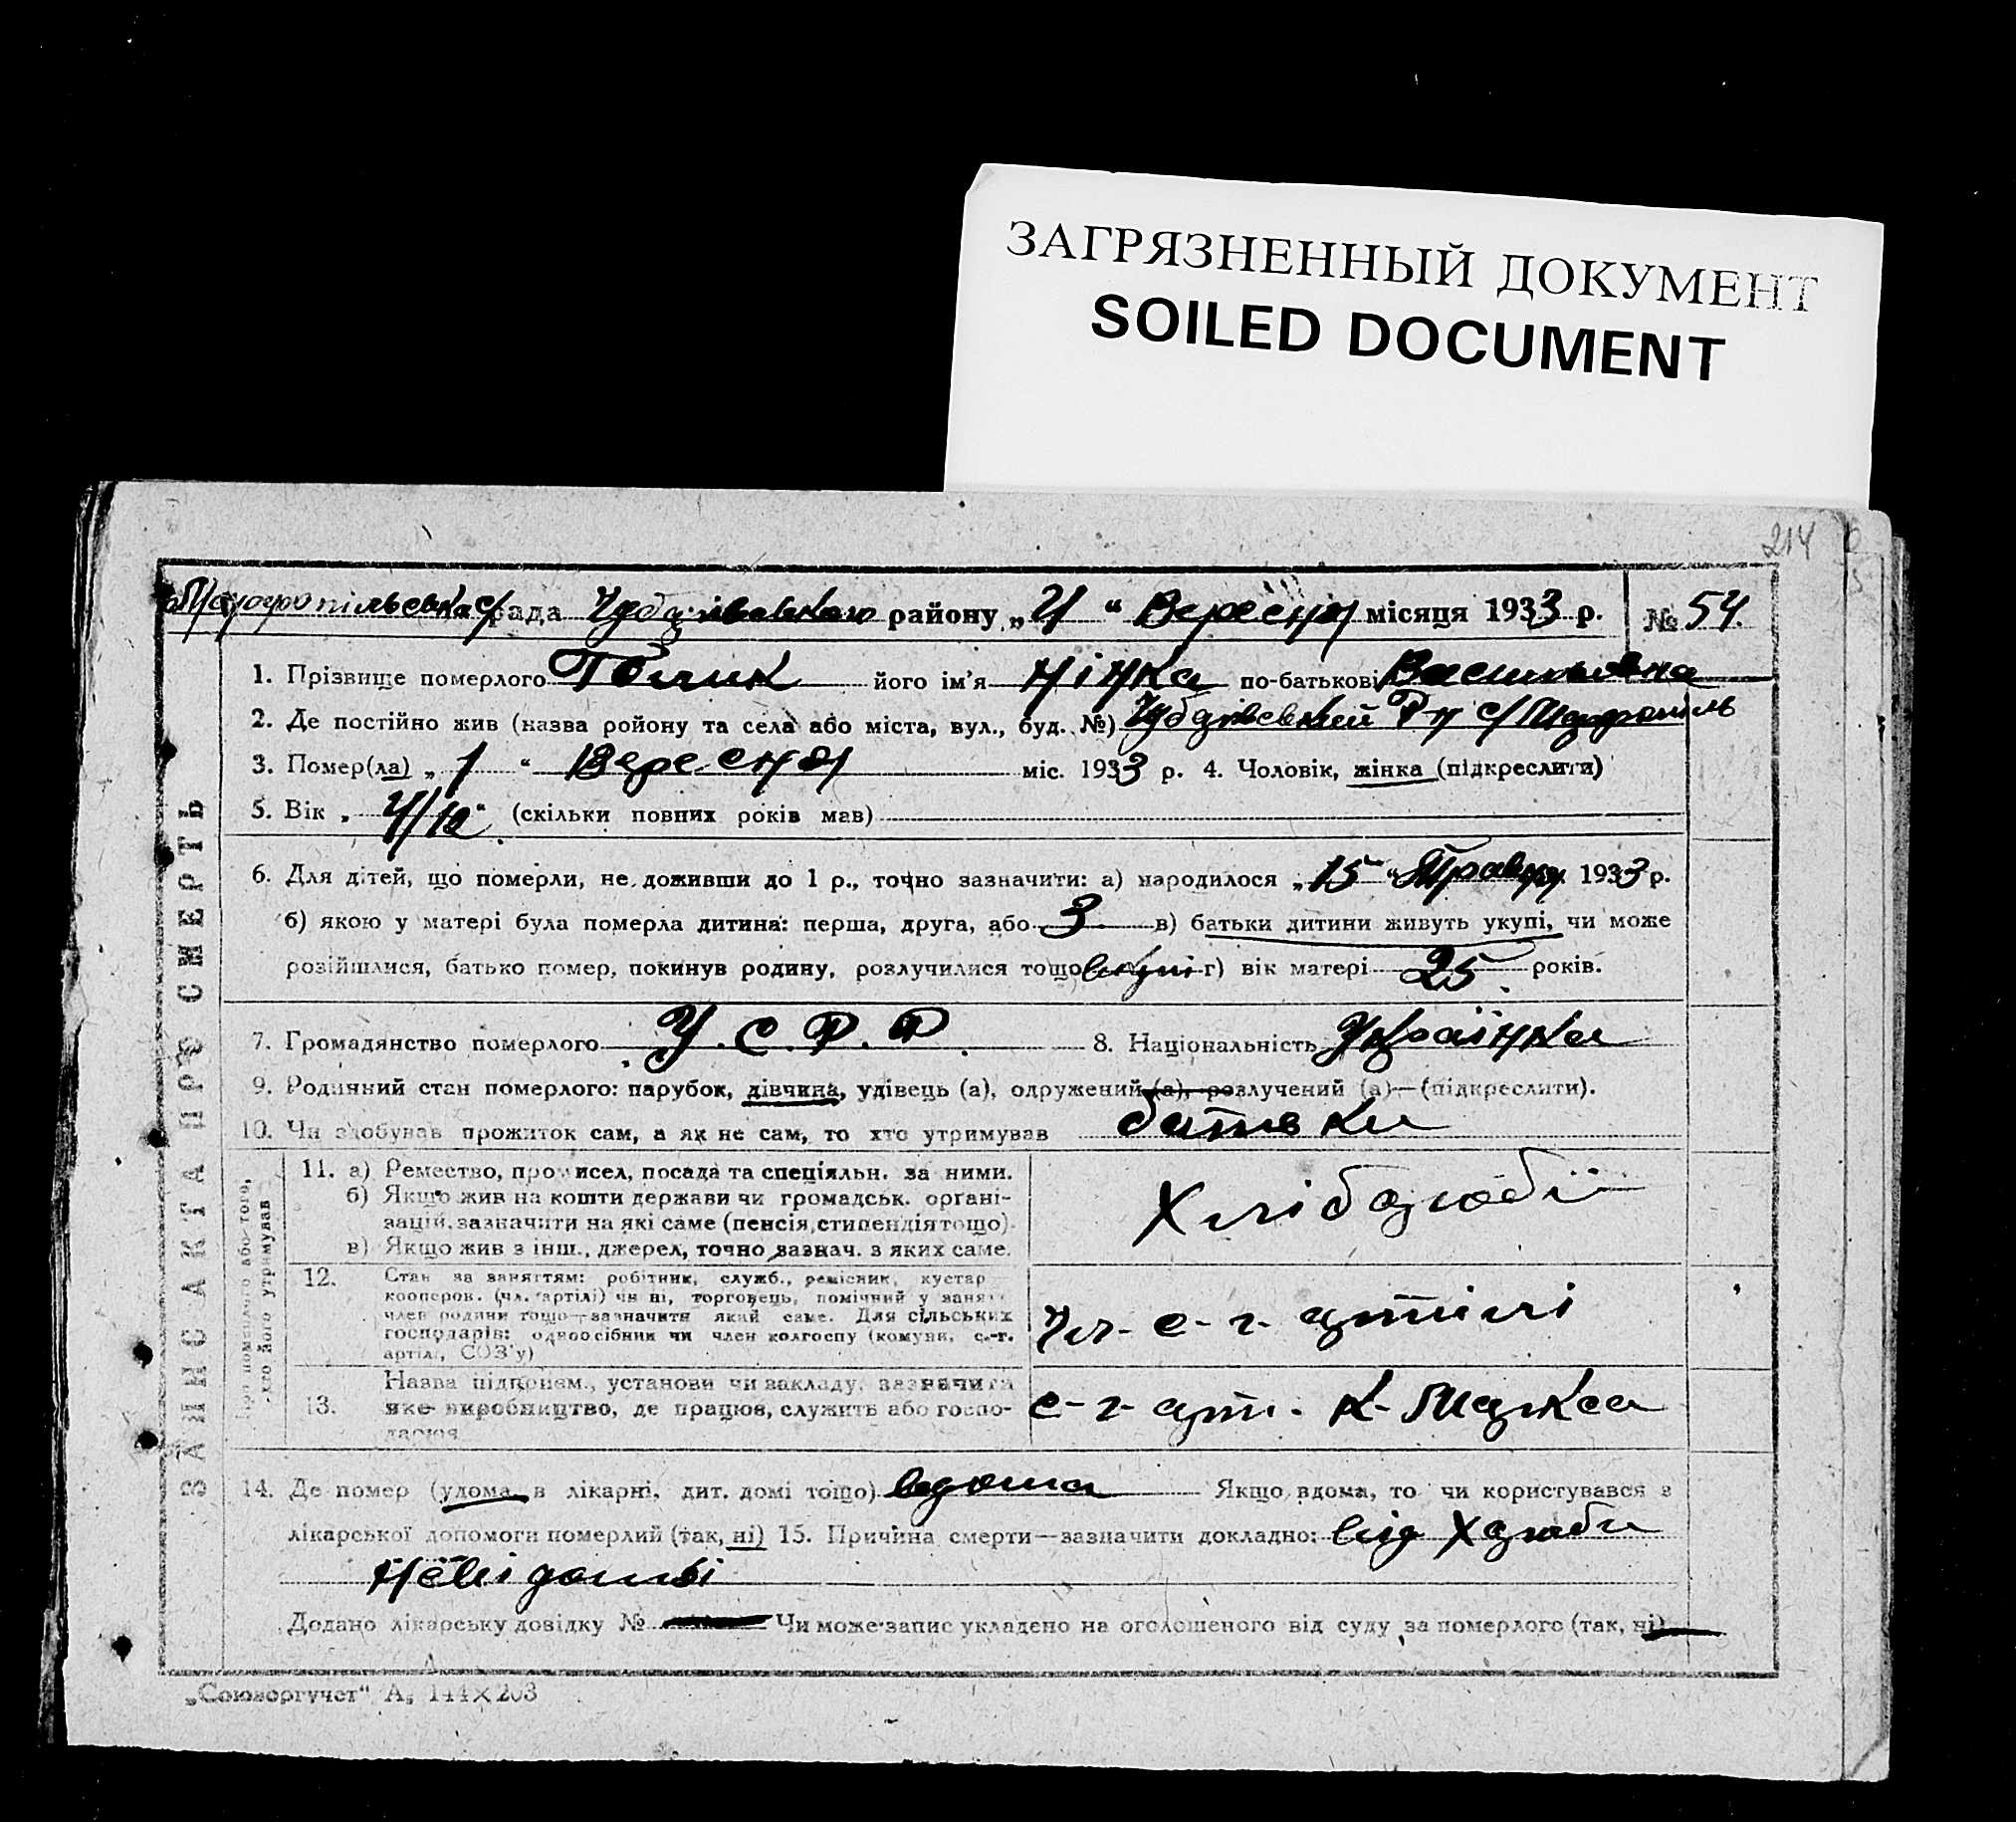 ЗАГРЯЗНЕННЫЙ ДОКУМЕНТ
SOILED DOCUMENT
214
рада района „ 4 “ Вересня місяця 1933 р. № 54.
1. Прізвище померлого його ім'я Нінка по-батькові Васильовна
2. Де постійно жив (назва ройону та села або міста, вул., буд. №)
3. Помер(ла) „ 1 “ Вересня міс. 1933 р. 4. Чоловік, жінка (підкреслити)
5. Вік „ 4/12 “ (скільки повних років мав)
ЗАПИС АКТА ПРО СМЕРТЬ
6. Для дітей, що померли, не доживши до 1 р., точно зазначити: а) народилося „ 15 “ Травня 1933 р.
б) якою у матері була померла дитина: перша, друга, або 3 в) батьки дитини живуть укупі, чи може
розійшлися, батько помер, покинув родину, розлучилися тощо вкупі г) вік матері 25 років.
7. Громадянство померлого У.С.Р.Р. 8. Національність Українка
9. Родинний стан померлого: парубок, дівчина, удівець (а), одружений (а), розлучений (а)—(підкреслити).
10. Чи здобував прожиток сам, а як не сам, то хто утримував батьки
Про померлого або того, хто його утримував
11. а) Ремество, промисел, посада та спеціяльн. за ними.
б) Якщо жив на кошти держави чи громадськ. організацій, зазначити на які саме (пенсія, стипендія тощо).
в) Якщо жив з інш., джерел, точно зазнач. з яких саме.
Хлібороби
12. Стан за заняттям: робітник, служб., ремісник, кустар
кооперов. (чл. артілі) чи ні, торговець, помічний у занят.
член родини тощо—зазначити який саме. Для сільських
господарів: одноосібник чи член колгоспу (комуни, с.-г.
артілі, СОЗ'у)
Чл. с-г. артілі
13. Назва підприєм., установи чи закладу, зазначити
яке виробництво, де працює, служить або господарює
с-г. арт. К. Маркса
14. Де помер (удома, в лікарні, дит. домі тощо) вдома Якщо вдома, то чи користувався з
лікарської допомоги померлий (так, ні) 15. Причина смерти—зазначити докладно: від Хароби
Невідомої
Додано лікарську довідку № Чи може запис укладено на оголошеного від суду за померлого (так, ні)
„Союзоргучет“ А₅ 144×203